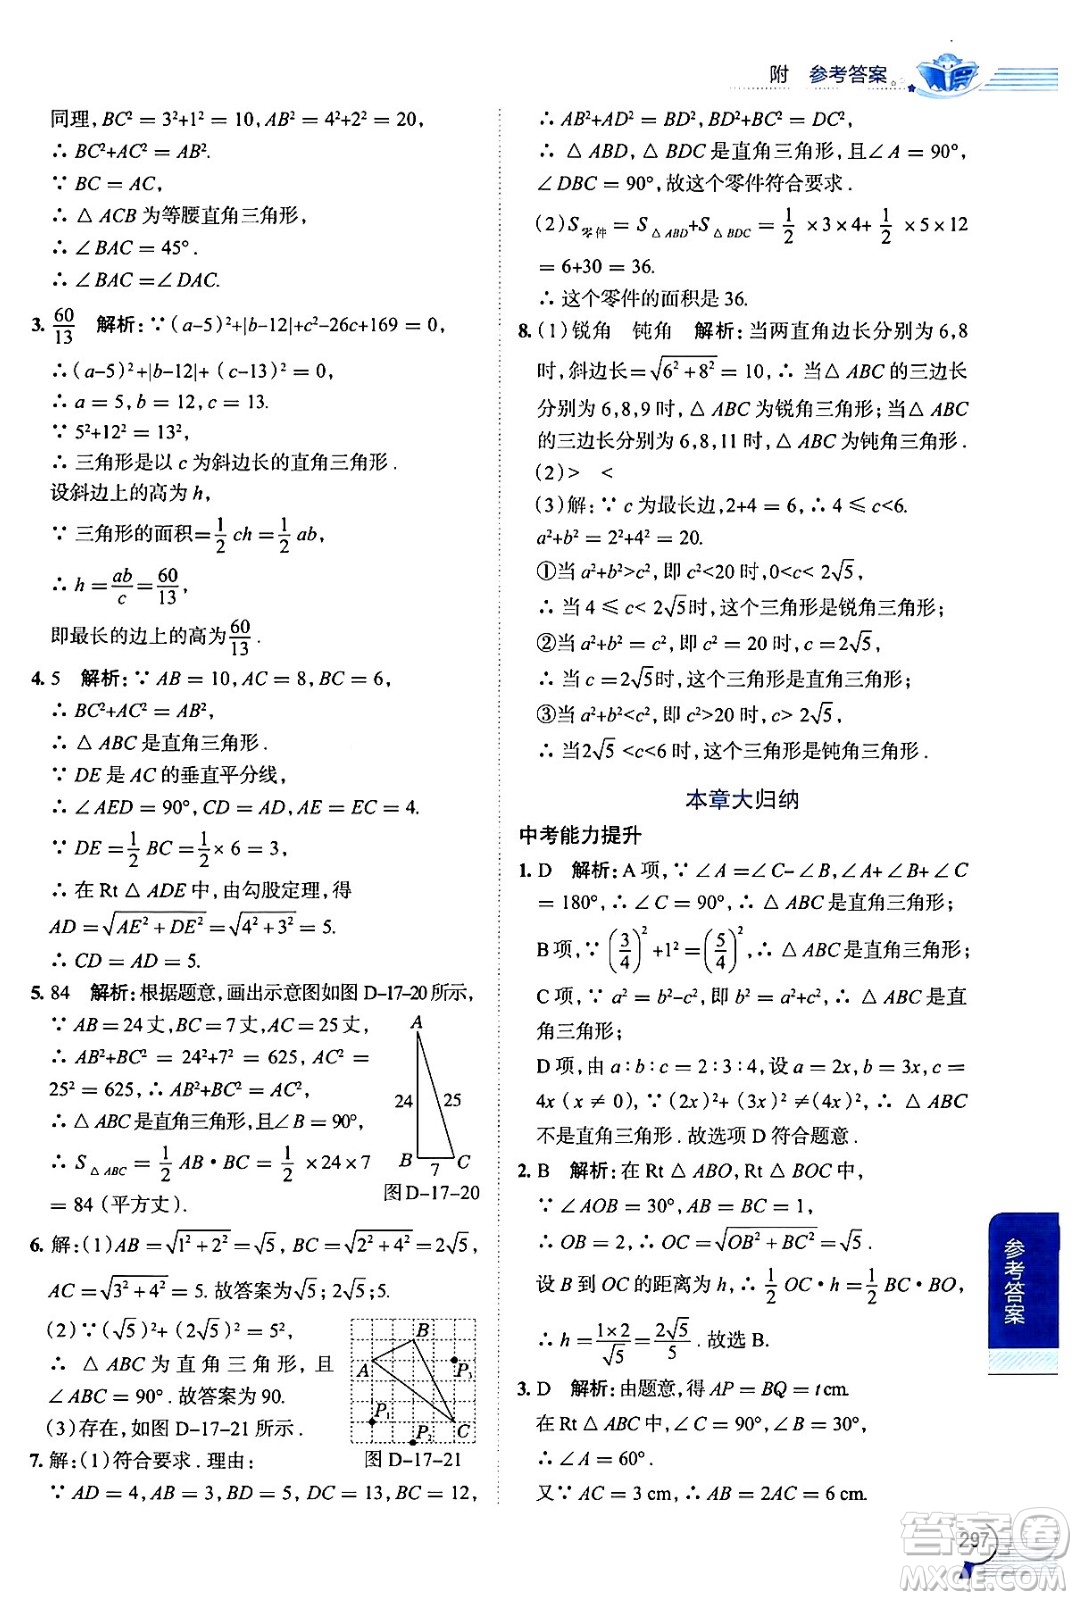 附 参考答案
同理,BC²=3²+1²=10,AB²=4²+2²=20,
∴ BC²+AC²=AB².
∵ BC=AC,
∴ △ACB 为等腰直角三角形.
∴ ∠BAC=45°.
∴ ∠BAC=∠DAC.
3. 60/13 解析:∵(a-5)²+|b-12|+c²-26c+169=0,
∴(a-5)²+|b-12|+(c-13)²=0,
∴ a=5,b=12,c=13.
∵ 5²+12²=13²,
∴ 三角形是以 c 为斜边长的直角三角形.
设斜边上的高为 h,
∵ 三角形的面积=1/2 ch=1/2 ab,
∴ h=ab/c=60/13,
即最长的边上的高为60/13.
4. 5 解析:∵ AB=10,AC=8,BC=6,
∴ BC²+AC²=AB²,
∴ △ABC 是直角三角形.
∵ DE 是 AC 的垂直平分线,
∴ ∠AED=90°,AE=EC=4.
∵ DE=1/2 BC=1/2×6=3,
∴ 在 Rt△ADE 中,由勾股定理,得
AD=√(AE²+DE²)=√(4²+3²)=5.
∴ CD=AD=5.
5. 84 解析:根据题意,画出示意图如图 D-17-20 所示,
∵ AB=24 丈,BC=7 丈,AC=25 丈,
∴ AB²+BC²=24²+7²=625,AC²=
25²=625,∴ AB²+BC²=AC²,
∴ △ABC 是直角三角形,且∠B=90°,
∴ S△ABC=1/2 AB·BC=1/2×24×7
=84(平方丈).
A
24
25
B
7
C
图 D-17-20
6. 解:(1)AB=√(1²+2²)=√5,BC=√(2²+4²)=2√5,
AC=√(3²+4²)=5. 故答案为√5;2√5;5.
(2)∵(√5)²+(2√5)²=5²,
∴ △ABC 为直角三角形,且
∠ABC=90°. 故答案为 90.
(3)存在,如图 D-17-21 所示.
B
A
P₃
P₁
C
P₂
图 D-17-21
7. 解:(1)符合要求.理由:
∵ AD=4,AB=3,BD=5,DC=13,BC=12,
∴ AB²+AD²=BD²,BD²+BC²=DC²,
∴ △ABD,△BDC 是直角三角形,且∠A=90°,
∠DBC=90°,故这个零件符合要求.
(2)S零件=S△ABD+S△BDC=1/2×3×4+1/2×5×12
=6+30=36.
∴ 这个零件的面积是 36.
8. (1)锐角 钝角 解析:当两直角边长分别为 6,8
时,斜边长=√(6²+8²)=10,∴ 当△ABC 的三边长
分别为 6,8,9 时,△ABC 为锐角三角形;当△ABC
的三边长分别为 6,8,11 时,△ABC 为钝角三角形.
(2)> <
(3)解:∵ c 为最长边,2+4=6,∴ 4≤c<6.
a²+b²=2²+4²=20.
①当 a²+b²>c²,即 c²<20 时,0<c<2√5,
∴ 当 4≤c<2√5时,这个三角形是锐角三角形;
②当 a²+b²=c²,即 c²=20 时,c=2√5,
∴ 当 c=2√5时,这个三角形是直角三角形;
③当 a²+b²<c²,即 c²>20 时,c>2√5,
∴ 当2√5<c<6 时,这个三角形是钝角三角形.
本章大归纳
中考能力提升
1. D 解析:A 项,∵ ∠A=∠C-∠B,∠A+∠B+∠C
=180°,∴ ∠C=90°,∴ △ABC 是直角三角形;
B 项,∵ (3/4)²+1²=(5/4)²,∴ △ABC 是直角三角形;
C 项,∵ a²=b²-c²,即 b²=a²+c²,∴ △ABC 是直
角三角形;
D 项,由 a:b:c=2:3:4,设 a=2x,b=3x,c=
4x(x≠0),∵(2x)²+(3x)²≠(4x)²,∴ △ABC
不是直角三角形.故选项 D 符合题意.
2. B 解析:在 Rt△ABO,Rt△BOC 中,
∵ ∠AOB=30°,AB=BC=1,
∴ OB=2,∴ OC=√(OB²+BC²)=√5.
设 B 到 OC 的距离为 h,∴ 1/2 OC·h=1/2 BC·BO,
∴ h=1×2/√5=2√5/5. 故选 B.
3. D 解析:由题意,得 AP=BQ=t cm.
在 Rt△ABC 中,∠C=90°,∠B=30°,
∴ ∠A=60°.
又∵ AC=3 cm,∴ AB=2AC=6 cm.
参考答案
297
答案卷
MXQE.COM